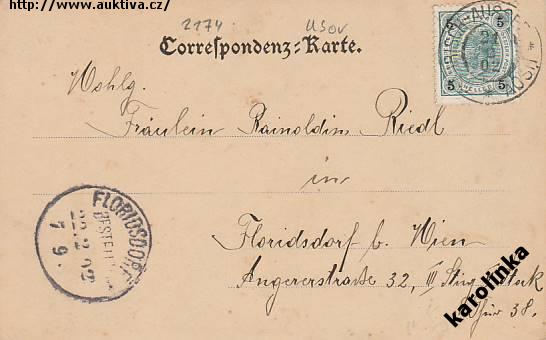 http://www.auktiva.cz/
2174. Ušov
Correspondenz-Karte.
5 5
5 5
Wohlg.
Fräulein Rainoldin Riedl
in
Floridsdorf b. Wien
Angererstraße 32, III Stieg, Stock
Thür 38.
FLORIDSDORF
BESTELLT
22.2.02
7 9
karolinka